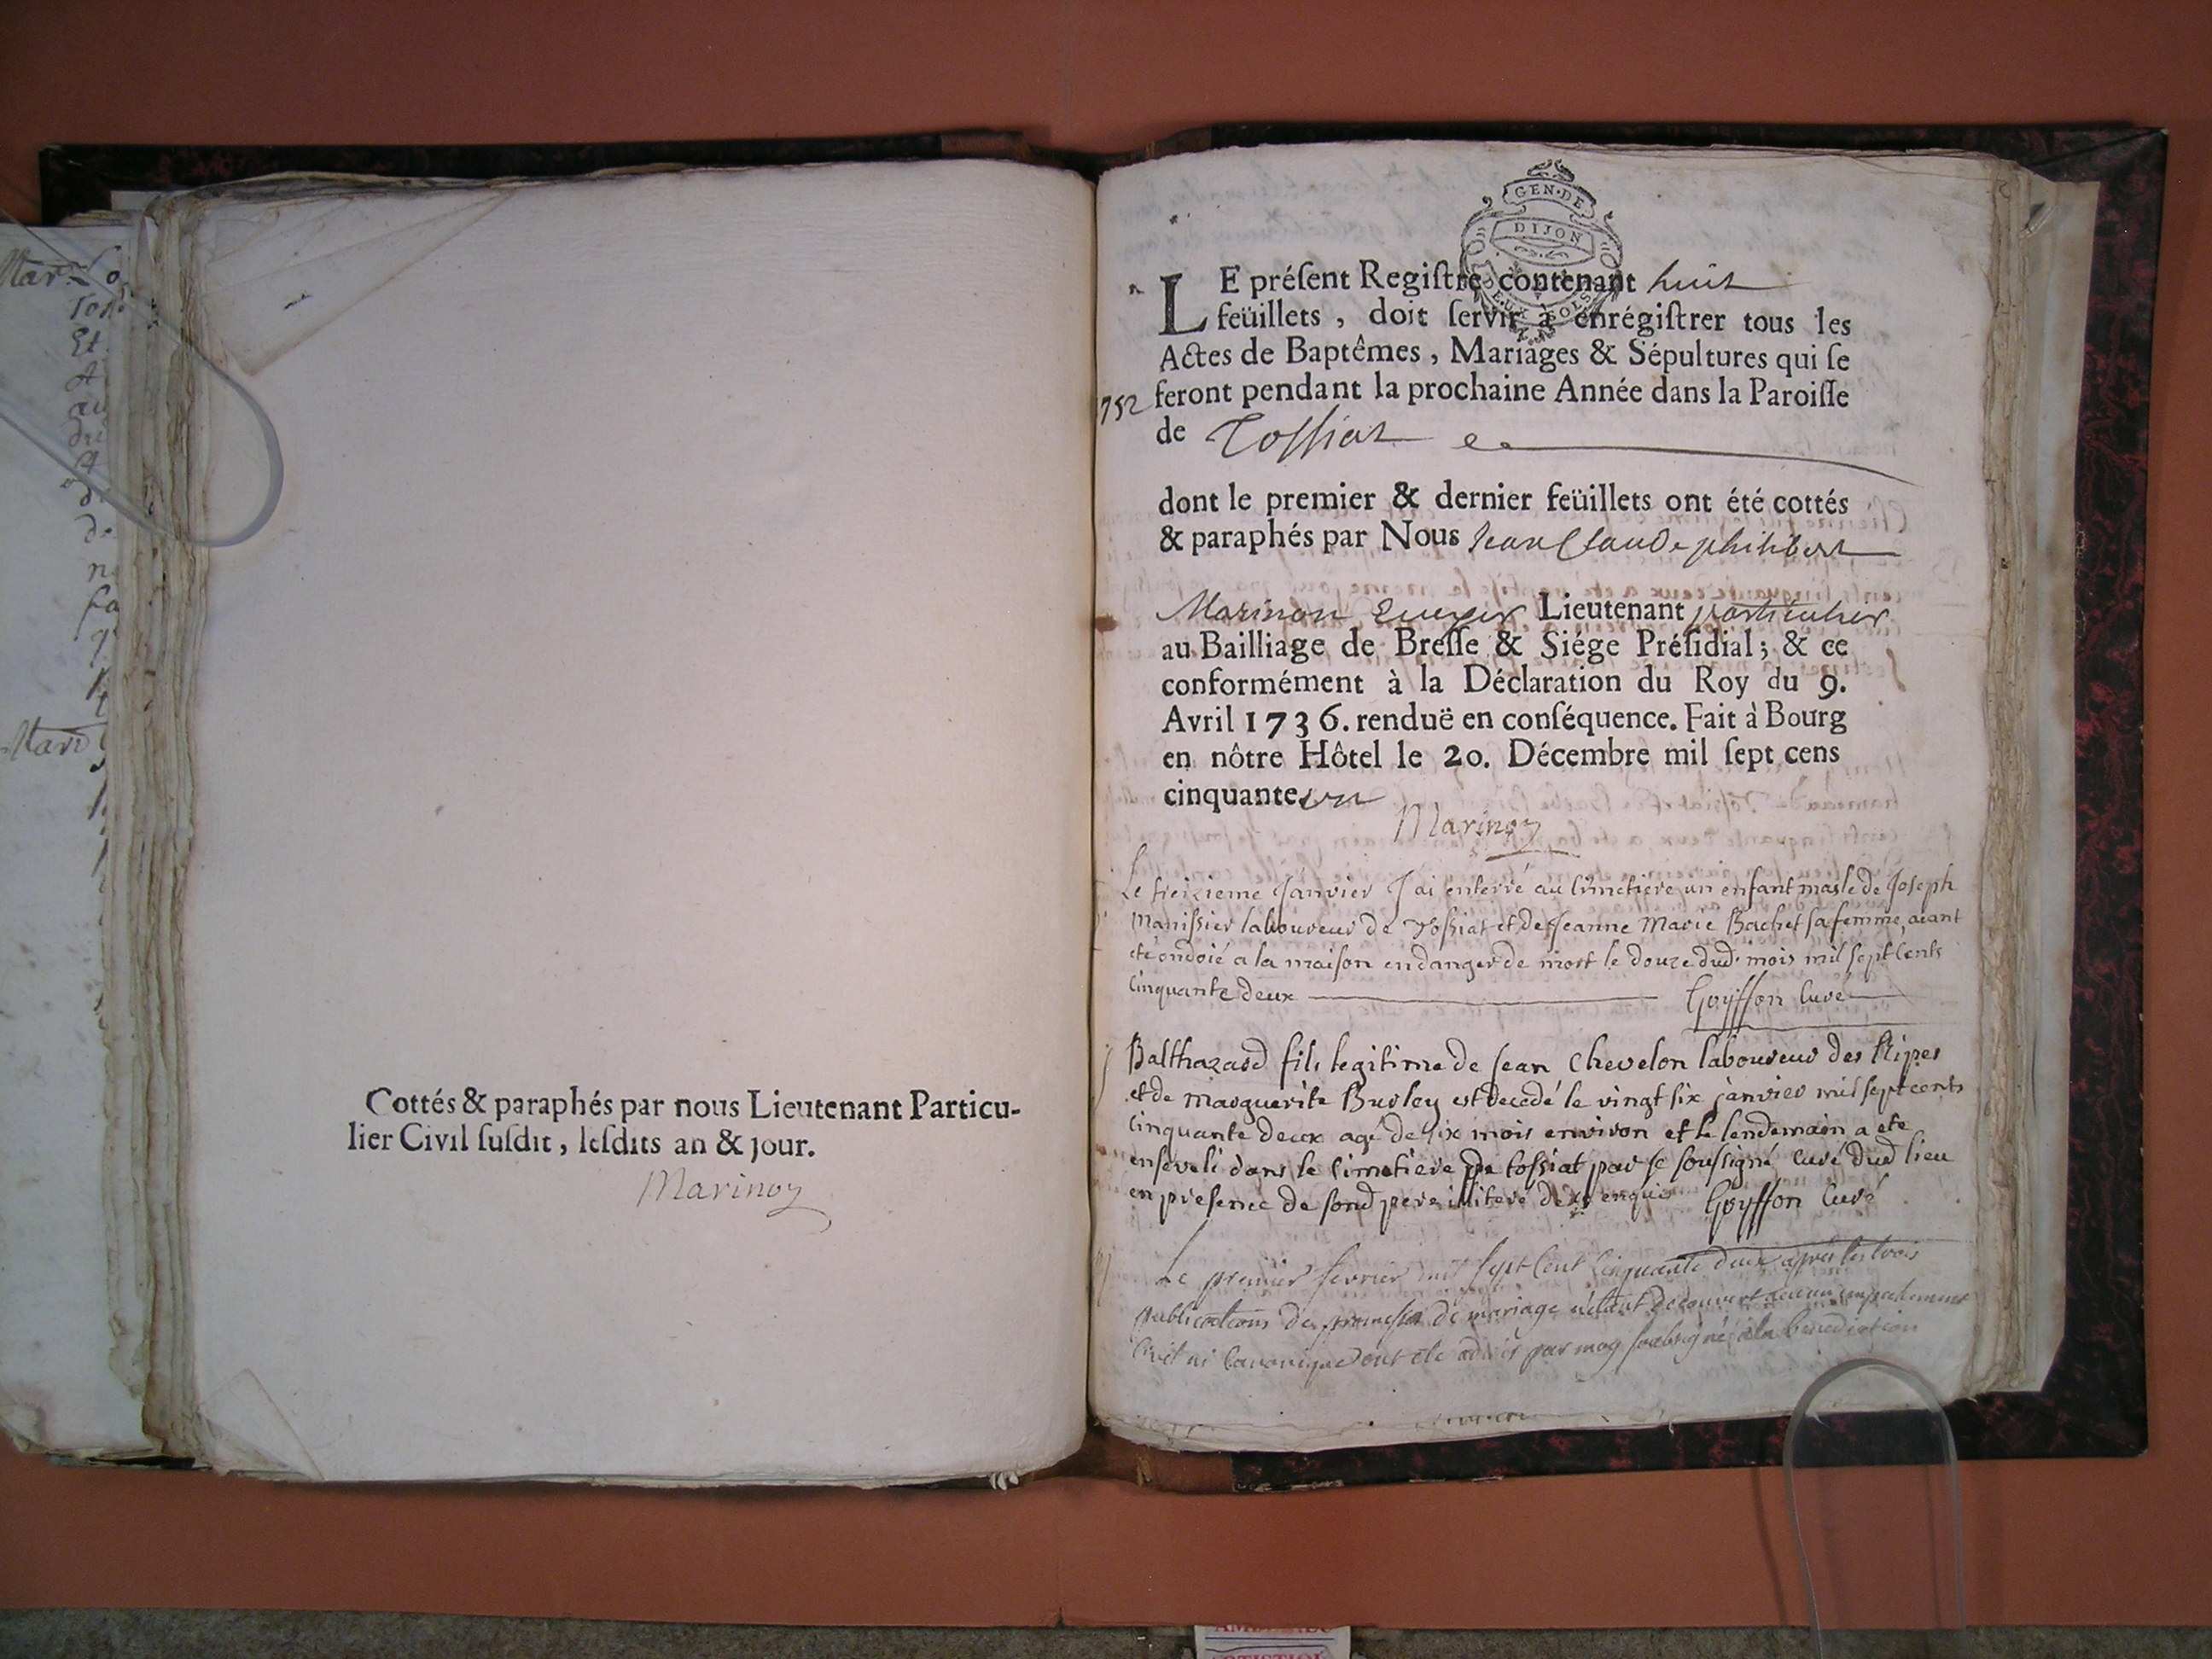 Cottés & paraphés par nous Lieutenant Particu-
lier Civil ſuſdit, leſdits an & jour.
Marinon
GEN·DE
DIJON
LE préſent Regiſtre contenant huit
feüillets, doit ſervir à enrégiſtrer tous les
Actes de Baptêmes, Mariages & Sépultures qui ſe
1752 feront pendant la prochaine Année dans la Paroiſſe
de Tossiat
dont le premier & dernier feüillets ont été cottés
& paraphés par Nous Jean Claude philibert
Marinon Lieutenant particulier
au Bailliage de Breſſe & Siége Préſidial; & ce
conformément à la Déclaration du Roy du 9.
Avril 1736. renduë en conſéquence. Fait à Bourg
en nôtre Hôtel le 20. Décembre mil ſept cens
cinquante un
Marinon
Le treizieme Janvier J'ai enterré au cimetiere un enfant masle de Joseph
Manissier laboureur de Tossiat et de Jeanne Marie Bachet sa femme, aiant
eté ondoié a la maison en danger de mort le douze dud. mois mil sept cents
cinquante deux Goyffon curé
Balthazard fils legitime de Jean Chevelon laboureur des Ripes
et de marguerite Burley est decedé le vingt six janvier mil sept cents
cinquante deux agé de six mois environ et le lendemain a eté
enseveli dans le cimetiere de tossiat par je soussigné curé dud lieu
en presence de sond pere illiteré de ce enquis Goyffon curé
Le premier fevrier mil sept cent cinquante deux apres les trois
publications des promesses de mariage n'étant decouvert aucun empechement
civil ni canonique ont été admis par moy soubsigné à la benediction